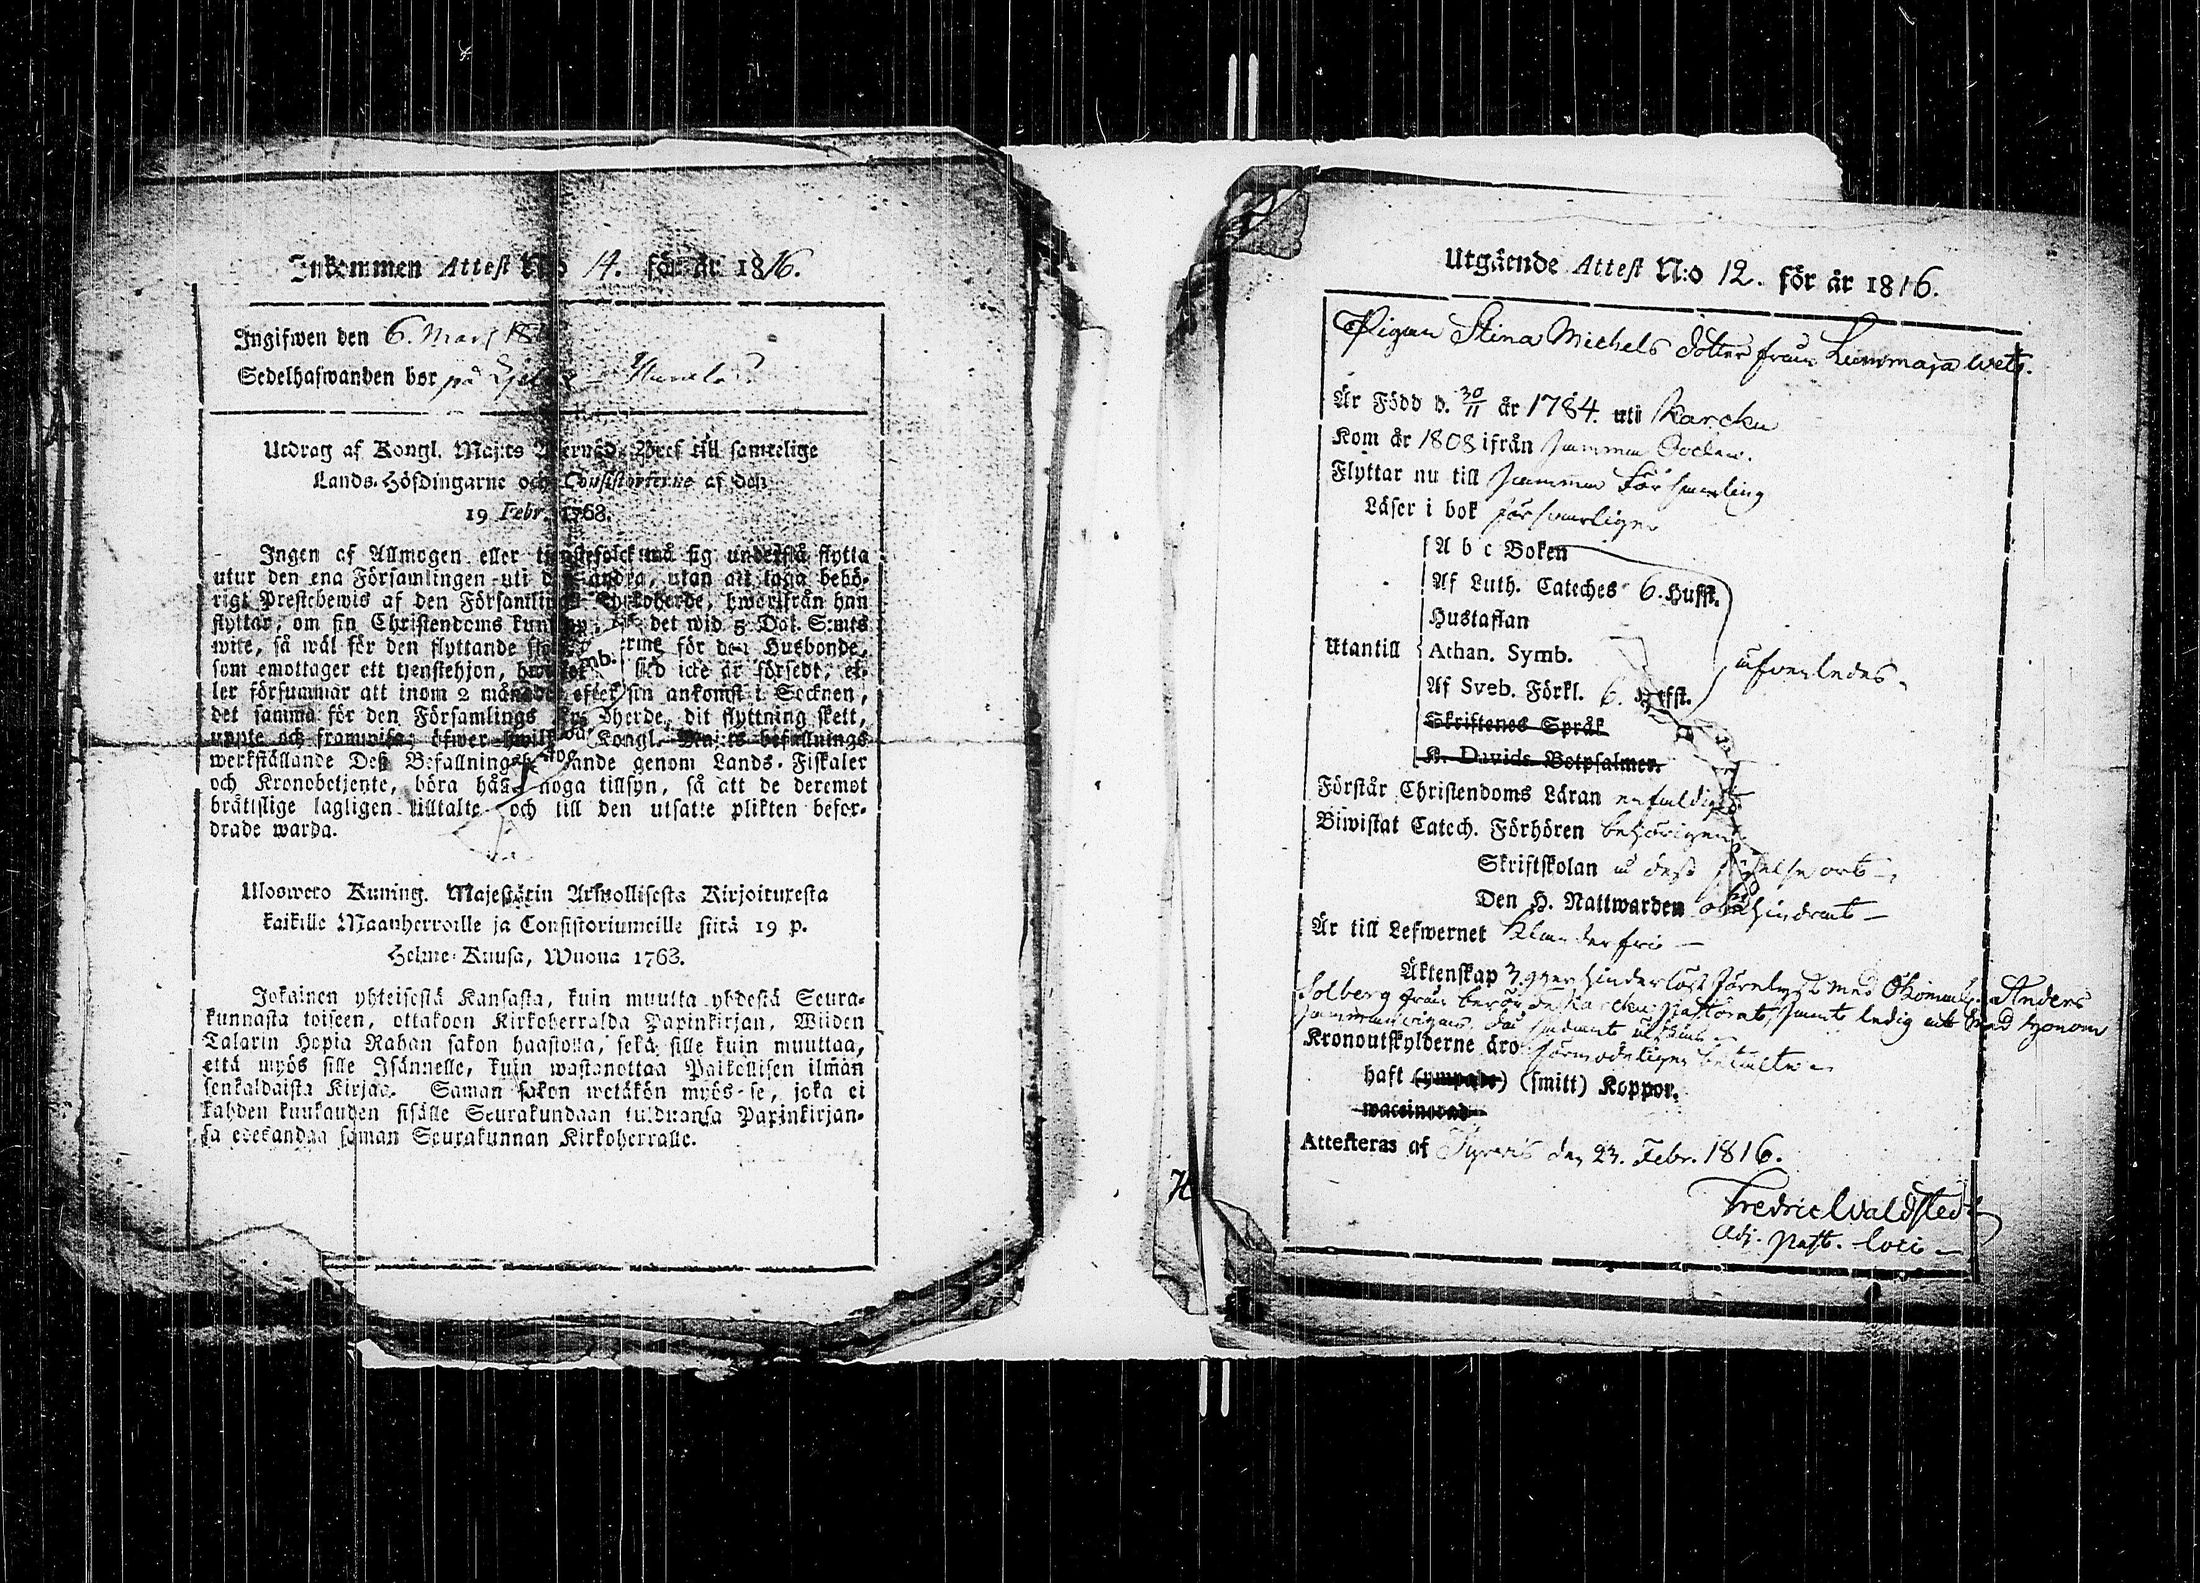 Inkommen Attest N:o 14. för år 1816.
Ingifwen den 6. Mars 18
Sedelhafwanden bor på
Utdrag af Kongl. Maj:ts Bref till samtelige
Lands-Höfdingarne och Consistorierne af den
19 Febr. 1763.
Ingen af Allmogen eller tjenstefolck må sig understå flytta
utur den ena Församlingen uti den andra, utan att taga behö-
rigt Prestebewis af den Församlings Kyrkoherde, hwarifrån han
flyttar, om sin Christendoms kunskap, det wid 5 Dal. S:mts
wite, så wäl för den flyttande som för den Husbonde,
som emottager ett tjenstehjon, icke är försedt, el-
ler försummar att inom 2 månader efter sin ankomst i Socknen,
det samma för den Församlings Kyrkoherde, dit flyttning skett,
uppte och framwisa; öfwer hwilket Kongl. Maj:ts befallnings
werkställande Deß Befallningshafwande genom Lands-Fiskaler
och Kronobetjente, böra hafwa noga tillsyn, så att de deremot
brätslige lagligen tilltalte och till den utsatte plikten befor-
drade warda.
Ulosweto Kuning. Majestätin Armollisesta Kirjoituxesta
kaikille Maanherroille ja Consistoriumeille siitä 19 p.
Helme-Kuusa, Wuona 1763.
Jokainen yhteisestä Kansasta, kuin muutta yhdestä Seura-
kunnasta toiseen, ottakoon Kirkoherralda Papinkirjan, Wiiden
Talarin Hopia Rahan sakon haastolla, sekä sille kuin muuttaa,
että myös sille Isännelle, kuin wastanottaa Paikollisen ilman
senkaldaista Kirjaa. Saman sakon wetäkön myös se, joka ei
kahden kuukauden sisälle Seurakundaan tulduansa Papinkirjan-
sa edesandaa saman Seurakunnan Kirkoherralle.
Utgående Attest N:o 12. för år 1816.
Pigan Stina Michels dotter från Kummaja wets.
Är Född d. 30/11 år 1784. uti Karcku
Kom år 1808 ifrån samma Socken.
Flyttar nu till samma Församling
Läser i bok försvarligen
A b c Boken
Af Luth. Cateches 6. Hufst.
Hustaflan
Utantill Athan. Symb. äfvenledes.
Af Sveb. Förkl. 6. Hufst.
Skriftenes Språk
K. Davids Botpsalmer.
Förstår Christendoms Läran enfaldigt
Biwistat Catech. Förhören behörigen
Skriftskolan å deß ort
Den H. Nattwarden ohindrat
Är till Lefwernet klanderfri
Äktenskap 3. ggr hinderlöst med Anders
Solberg från Karcku pastorat, samt ledig att med honom

Kronoutskylderne äro förmodeligen betalte
haft (ympade) (smitt) Koppor.
waccinerad
Attesteras af Tyrvis den 23. Febr. 1816.
Fredric Waldstedt
Adj. past. loci